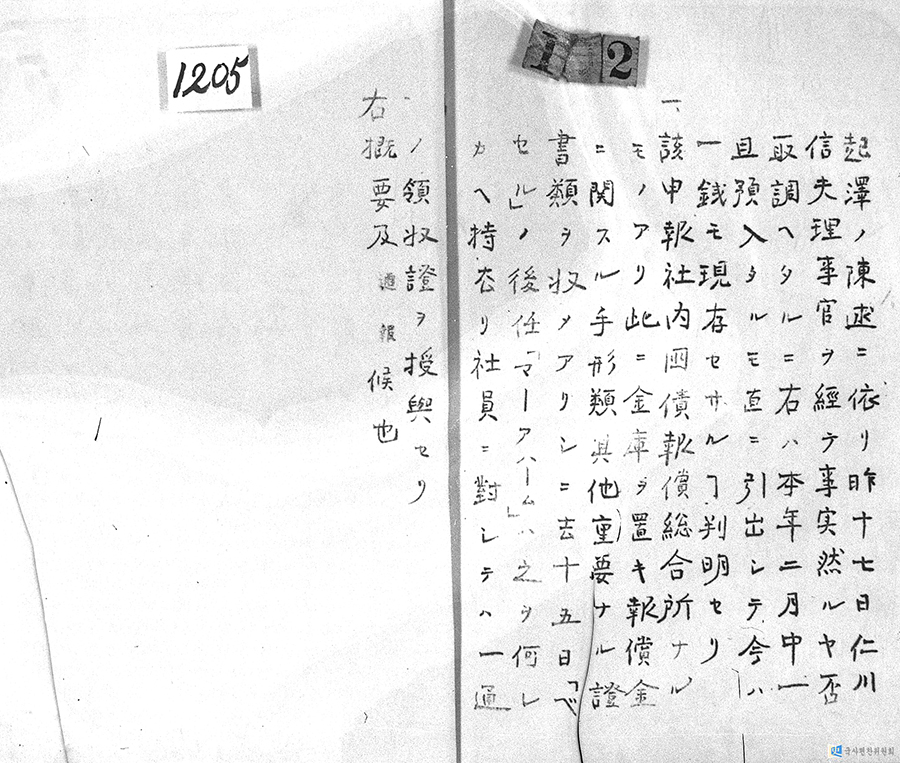 1205
12
起澤ノ陳述ニ依リ昨十七日仁川
信夫理事官ヲ経テ事実然ルヤ否
取調ヘタルニ右ハ本年二月中一
且預入タルモ直ニ引出シテ今ハ
一銭モ現存セサルヿ判明セリ
一、該申報社内國債報償総合所ナル
モノアリ此ニ金庫ヲ置キ報償金
ニ関スル手形類其他重要ナル證
書類ヲ収メアリシニ去十五日「ベ
セル」ノ後任「マーアハーム」ハ之ヲ何レ
カヘ持去リ社員ニ對シテハ一通
ノ領収證ヲ授與セリ
右概要及通報候也
국사편찬위원회